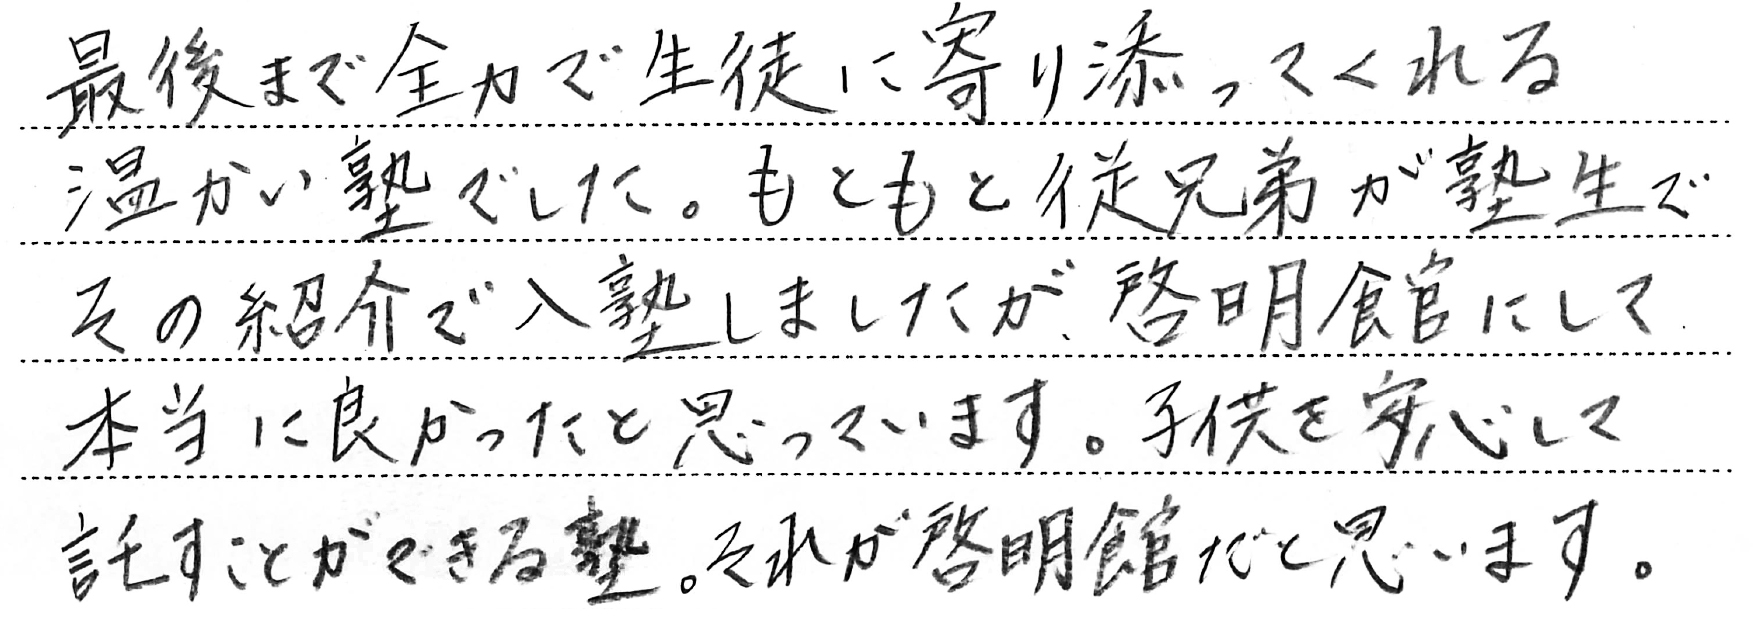 最後まで全力で生徒に寄り添ってくれる
温かい塾でした。もともと従兄弟が塾生で
その紹介で入塾しましたが、啓明館にして
本当に良かったと思っています。子供を安心して
託すことができる塾。それが啓明館だと思います。